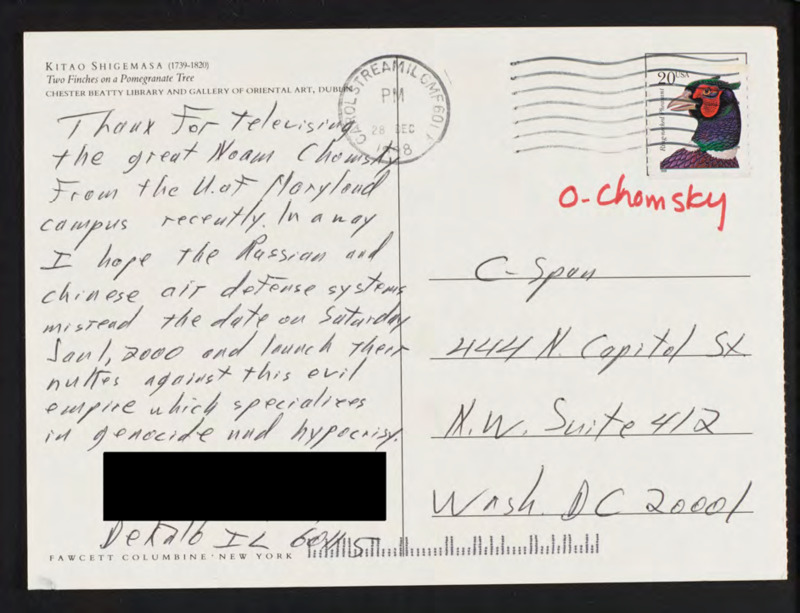 KITAO SHIGEMASA (1739-1820)
Two Finches on a Pomegranate Tree
CHESTER BEATTY LIBRARY AND GALLERY OF ORIENTAL ART, DUBLIN
Thanx for televising
the great Noam Chomsky
from the U.of Maryland
campus recently. In a way
I hope the Russian and
chinese air defense systems
misread the date on Saturday
Jan 1, 2000 and launch their
nukes against this evil
empire which specializes
in genocide and hypocrisy.
DeKalb IL 60115
FAWCETT COLUMBINE · NEW YORK
CAROL STREAM IL GMF 601
PM
28 DEC
20 USA
Ring-necked Pheasant
O-Chomsky
C-Span
444 N. Capitol St
N.W. Suite 412
Wash. DC 20001